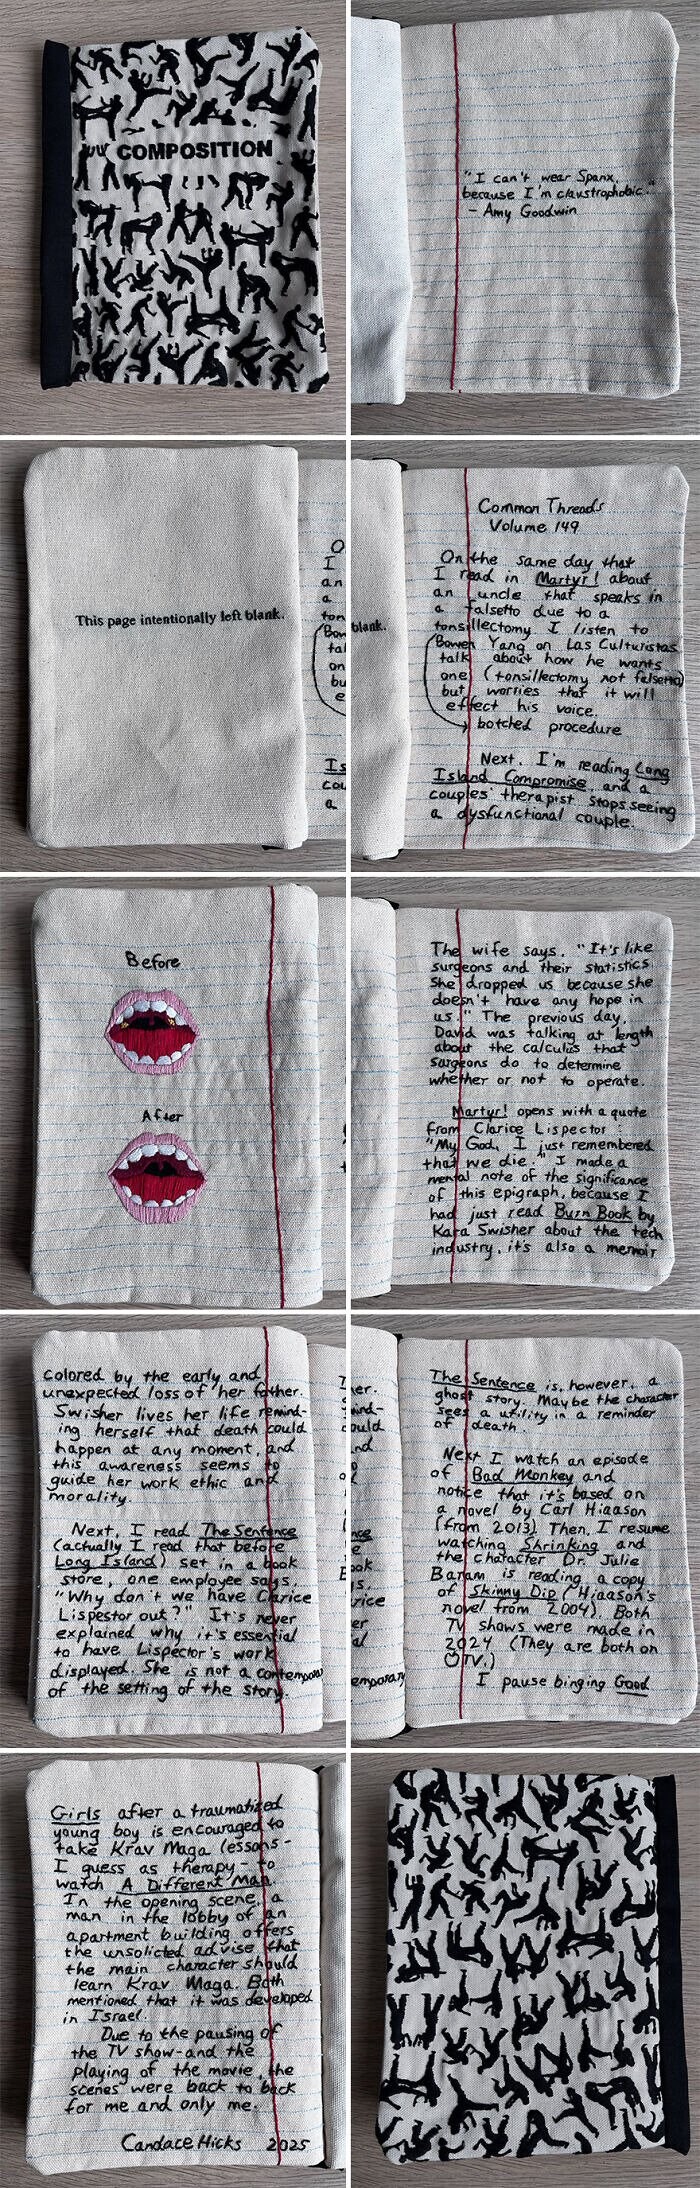 COMPOSITION
"I can't wear Spanx,
because I'm claustrophobic."
- Amy Goodwin
This page intentionally left blank.
Common Threads
Volume 149
On the same day that
I read in Martyr! about
an uncle that speaks in
a falsetto due to a
tonsillectomy I listen to
Bowen Yang on Las Culturistas
talk about how he wants
one (tonsillectomy not falsetto)
but worries that it will
effect his voice.
botched procedure
Next, I'm reading Long
Island Compromise, and a
couples' therapist stops seeing
a dysfunctional couple.
Before
After
The wife says, "It's like
surgeons and their statistics.
She dropped us because she
doesn't have any hope in
us." The previous day,
David was talking at length
about the calculus that
surgeons do to determine
whether or not to operate.
Martyr! opens with a quote
from Clarice Lispector:
"My God, I just remembered
that we die." I made a
mental note of the significance
of this epigraph, because I
had just read Burn Book by
Kara Swisher about the tech
industry, it's also a memoir
colored by the early and
unexpected loss of her father.
Swisher lives her life remind-
ing herself that death could
happen at any moment, and
this awareness seems to
guide her work ethic and
morality.
Next, I read The Sentence
(actually I read that before
Long Island) set in a book
store, one employee says,
"Why don't we have Clarice
Lispestor out?" It's never
explained why it's essential
to have Lispector's work
displayed. She is not a contemporary
of the setting of the story.
The Sentence is, however, a
ghost story. Maybe the character
sees a utility in a reminder
of death.
Next I watch an episode
of Bad Monkey and
notice that it's based on
a novel by Carl Hiaason
(from 2013). Then, I resume
watching Shrinking and
the character Dr. Julie
Baram is reading a copy
of Skinny Dip (Hiaason's
novel from 2004). Both
TV shows were made in
2024 (They are both on
TV.)
I pause binging Good
Girls after a traumatized
young boy is encouraged to
take Krav Maga lessons -
I guess as therapy - to
watch A Different Man
In the opening scene, a
man in the lobby of an
apartment building offers
the unsolicted advise that
the main character should
learn Krav Maga. Both
mentioned that it was developed
in Israel.
Due to the pausing of
the TV show and the
playing of the movie, the
scenes were back to back
for me and only me.
Candace Hicks 2025